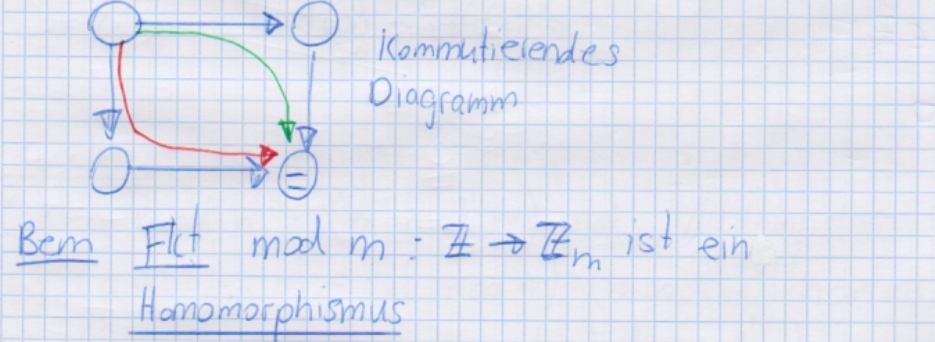 Kommutierendes
Diagramm
=
Bem Fkt mod m : ℤ → ℤm ist ein
Homomorphismus